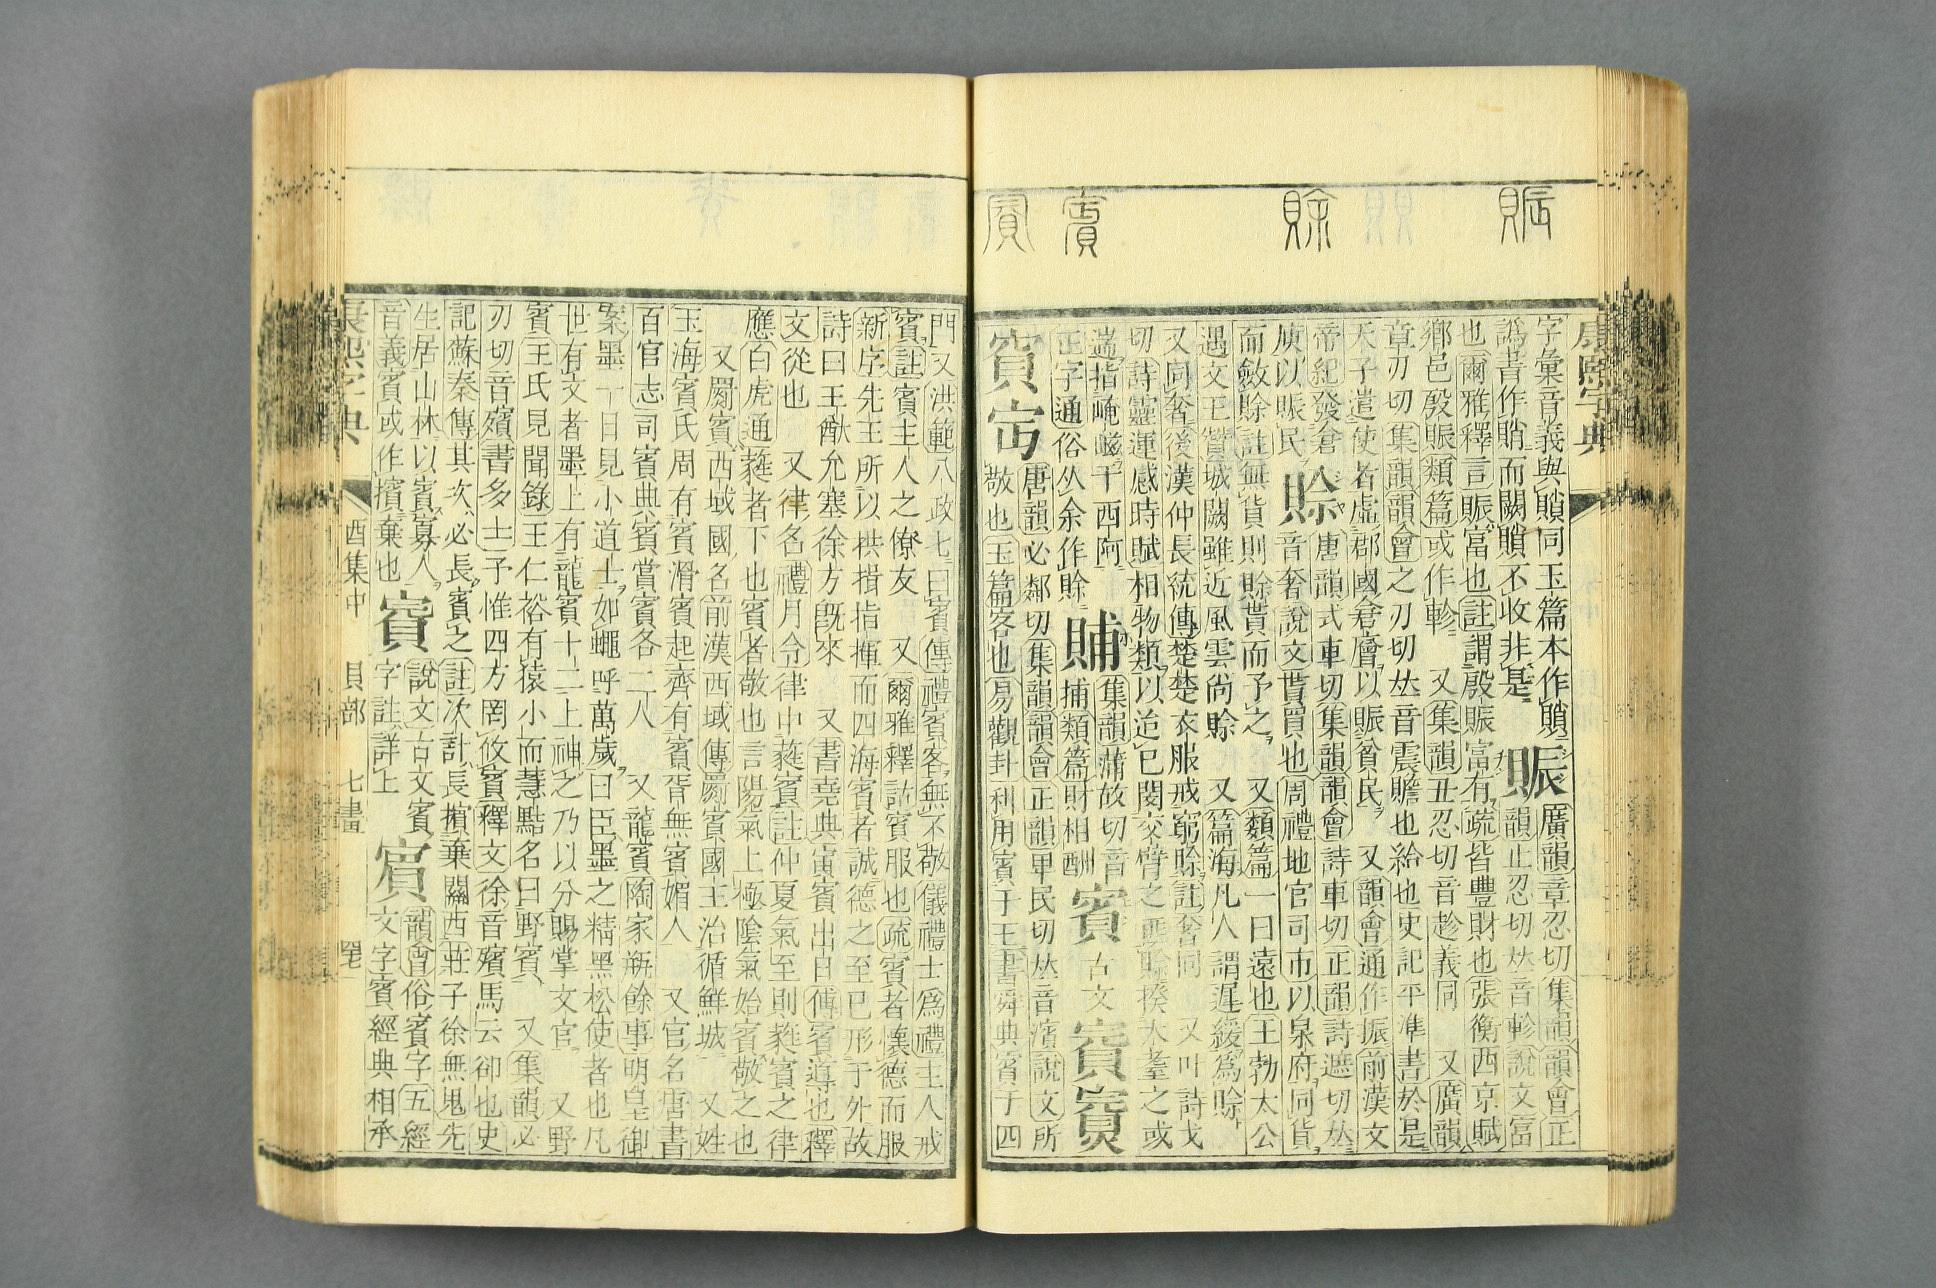 康熙字典
字彙音義與䝼同玉篇本作䝼
譌書作䝼而闕䝼不收非是
賑
廣韻章忍切集韻韻會正
韻止忍切𠀤音軫說文富
也爾雅釋言賑富也註謂殷賑富有疏皆豐財也張衡西京賦
鄕邑殷賑類篇或作軫 又集韻丑忍切音趁義同 又廣韻
章刃切集韻韻會之刃切𠀤音震贍也給也史記平準書於是
天子遣使者虛郡國倉廥以賑貧民 又韻會通作振前漢文
帝紀發倉庾以賑民
賖
唐韻式車切集韻韻會詩車切正韻詩遮切𠀤
音奢說文貰買也周禮地官司市以泉府同貨
而斂賖註無貨則賖貰而予之 又類篇一曰遠也王勃太公
遇文王贊城闕雖近風雲尙賖 又篇海凡人謂遲緩爲賖
又同奢後漢仲長統傳楚楚衣服戒窮賖註奢同 又叶詩戈
切詩靈運感時賦相物類以迨已閔交臂之匪賖揆大耋之或
遄指崦嵫于西阿
正字通俗从余作賒
䝵
集韻蒲故切音
捕類篇財相酬
賓
古文
賔𡪛
𡧍𡧼
唐韻必鄰切集韻韻會正韻𤰞民切𠀤音濱說文所
敬也玉篇客也易觀卦利用賓于王書舜典賓于四
門 又洪範八政七曰賓傳禮賓客無不敬儀禮士爲禮主人戒
賓註賓主人之僚友 又爾雅釋詁賓服也疏賓者懷德而服
新序先王所以拱揖指揮而四海賓者誠德之至已形于外故
詩曰王猷允塞徐方旣來 又書堯典寅賓出日傳賓導也釋
文從也 又律名禮月令律中蕤賓註仲夏氣至則蕤賓之律
應白虎通蕤者下也賓者敬也言陽氣上極陰氣始賓敬之也
又罽賓西域國名前漢西域傳罽賓國王治循鮮城 又姓
玉海賓氏周有賓滑賓起齊有賓胥無賓媚人 又官名唐書
百官志司賓典賓掌賓各二人 又龍賓陶家甁餘事明皇御
案墨一日見小道士如蠅呼萬歲曰臣墨之精黑松使者也凡
世有文者墨上有龍賓十二上神之乃以分賜掌文官 又野
賓王氏見聞錄王仁裕有猿小而慧黠名曰野賓 又集韻必
刃切音殯書多士予惟四方罔攸賓釋文徐音殯馬云卻也史
記蘇秦傳其次必長賓之註次計長擯棄關西莊子徐無鬼先
生居山林以賓寡人
音義賓或作擯棄也
賔
說文古文賓
字註詳上
𡪛
韻會俗賓字五經
文字賓經典相承
康熙字典
酉集中 貝部 七畫